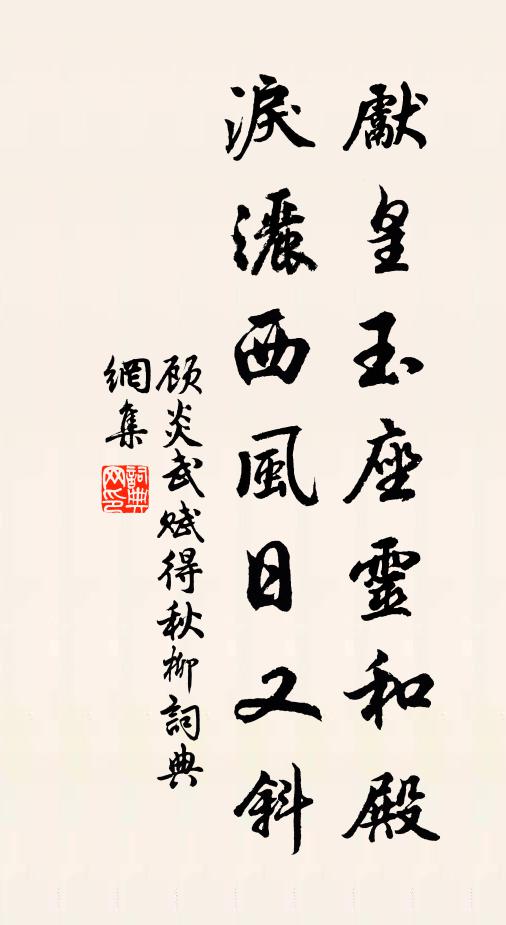 獻皇玉座靈和殿
淚灑西風日又斜
顾炎武赋得秋柳詞典
網集
詞典
网印